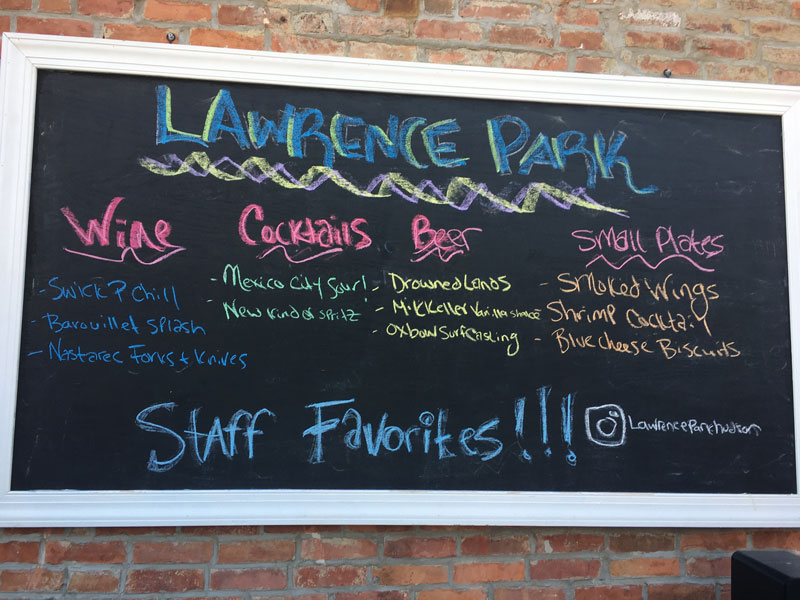 LAWRENCE PARK
Wine
- Swick P Chill
- Barouillet Splash
- Nastarec Forks + Knives
Cocktails
- Mexico City Sour!
- New Kind of Spritz
Beer
- Drowned Lands
- Mikkeller Vanilla
- Oxbow Surfcasting
Small Plates
- Smoked Wings
Shrimp Cocktail
- Blue Cheese Biscuits
Staff Favorites!!!